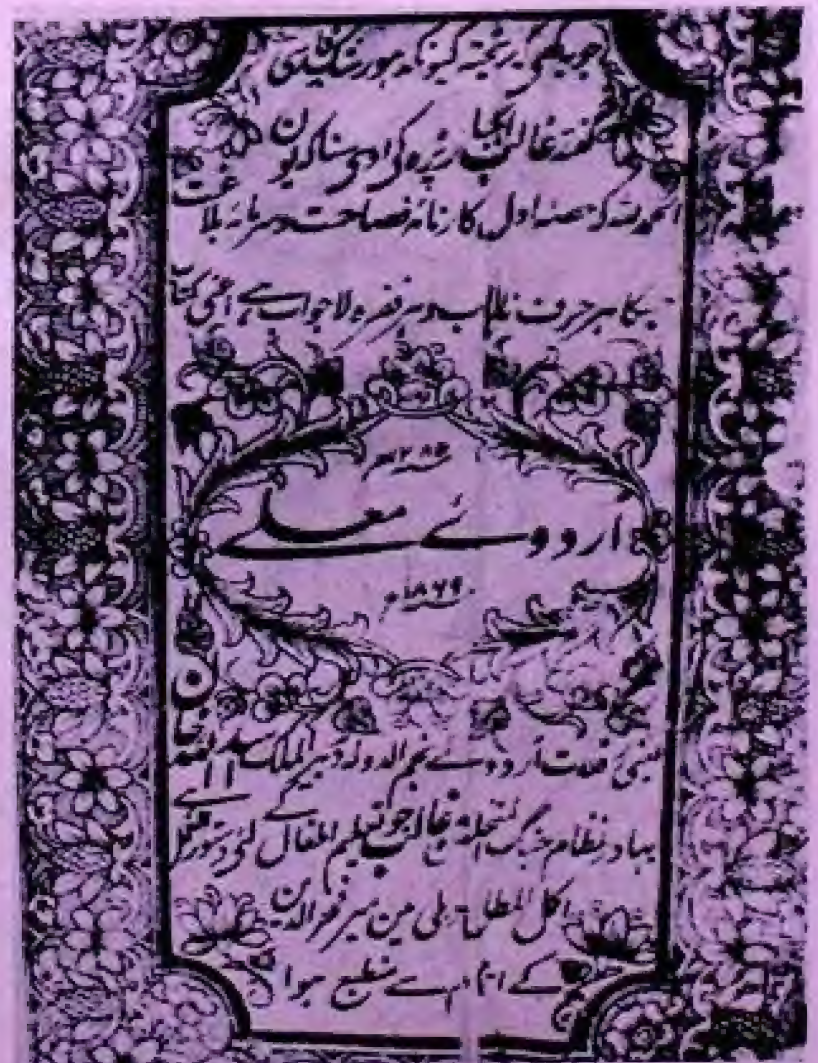 جو یہ کہے کہ ریختہ کیونکہ ہو رشک فارسی
گفتۂ غالب ایکبار پڑھ کے اوسے سنا کہ یوں
الحمد للہ کہ حصہ اول کارنامۂ فصاحت و سرمایۂ بلاغت
جسکا ہر حرف نایاب و ہر فقرہ لاجواب ہے اعنی کتاب
سنہ ۱۲۸۵ ھ
اردوئے معلے
سنہ ۱۸۶۹ ء
رقعات اردوے نجم الدولہ دبیر الملک اسد اللہ خان
بہادر نظام جنگ المتخلص بہ غالب جو تعلیم المقال کے لئے دستور العمل ہے
اکمل المطابع دہلی میں میر فخر الدین
کے اہتمام سے منطبع ہوا